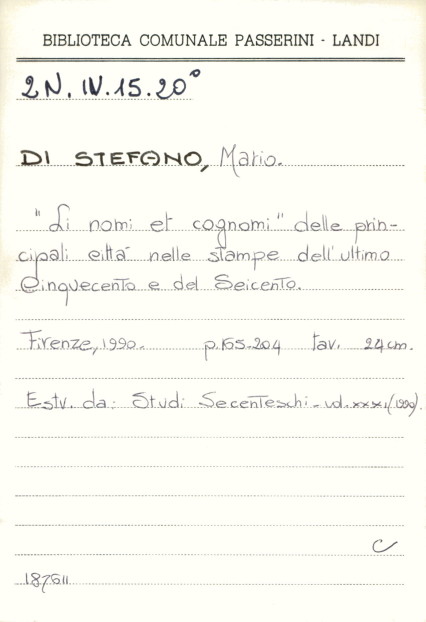 BIBLIOTECA COMUNALE PASSERINI - LANDI
2N. IV. 15. 20°
DI STEFANO, Mario.
"Li nomi et cognomi" delle prin-
cipali città nelle stampe dell'ultimo
Cinquecento e del Seicento.
Firenze, 1990. p. 165-204 tav. 24 cm.
Estr. da: Studi Secenteschi - vol. xxxi (1990).
C
187611